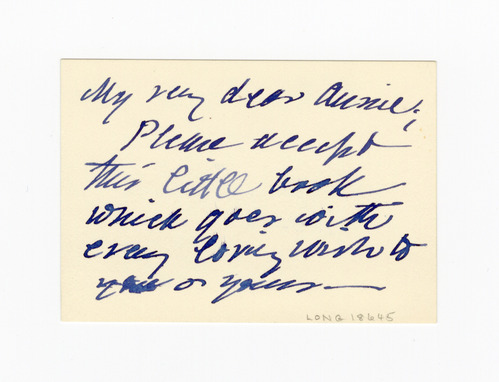 My very dear Annie,
Please accept
this little book
which goes with
every loving wish to
you & yours—
LONG 18645